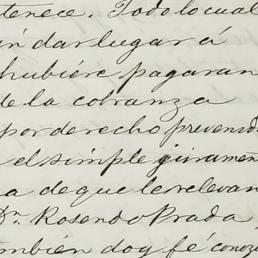 tenece. Todo lo cual
in dar lugar á
hubiére pagaran
de la cobranza
por derecho prevenid
el simple juramen
a de que le relevan
Dr. Rosendo Prada
mbién doy fé conoz